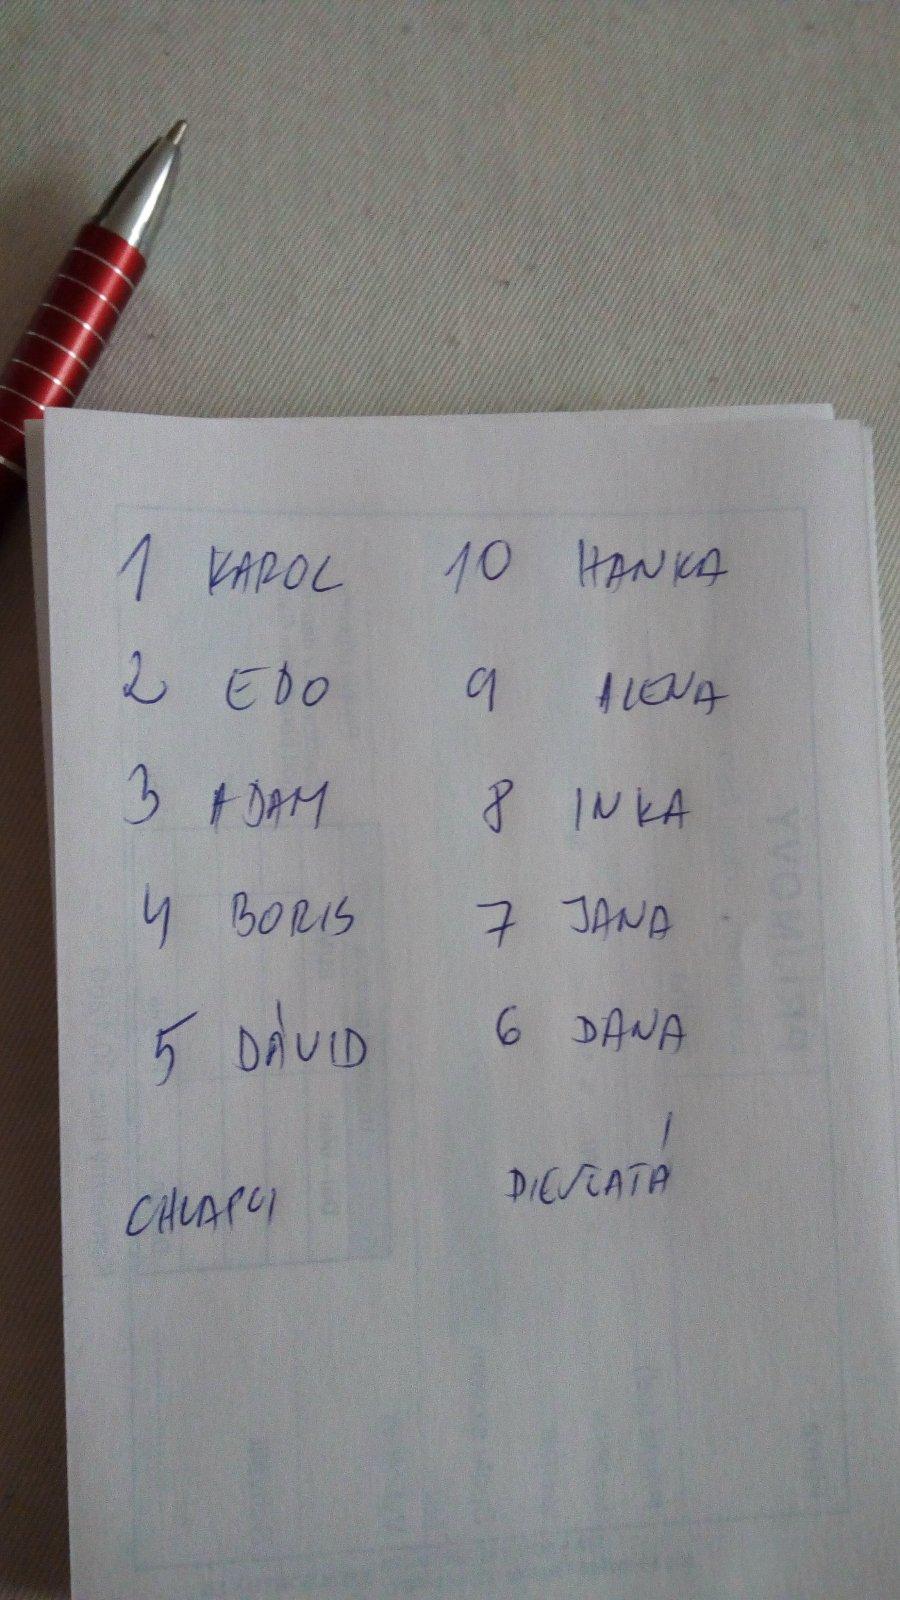 1 KAROL 10 HANKA
2 EDO 9 ALENA
3 ADAM 8 INKA
4 BORIS 7 JANA
5 DÁVID 6 DANA
CHLAPCI DIEVČATÁ